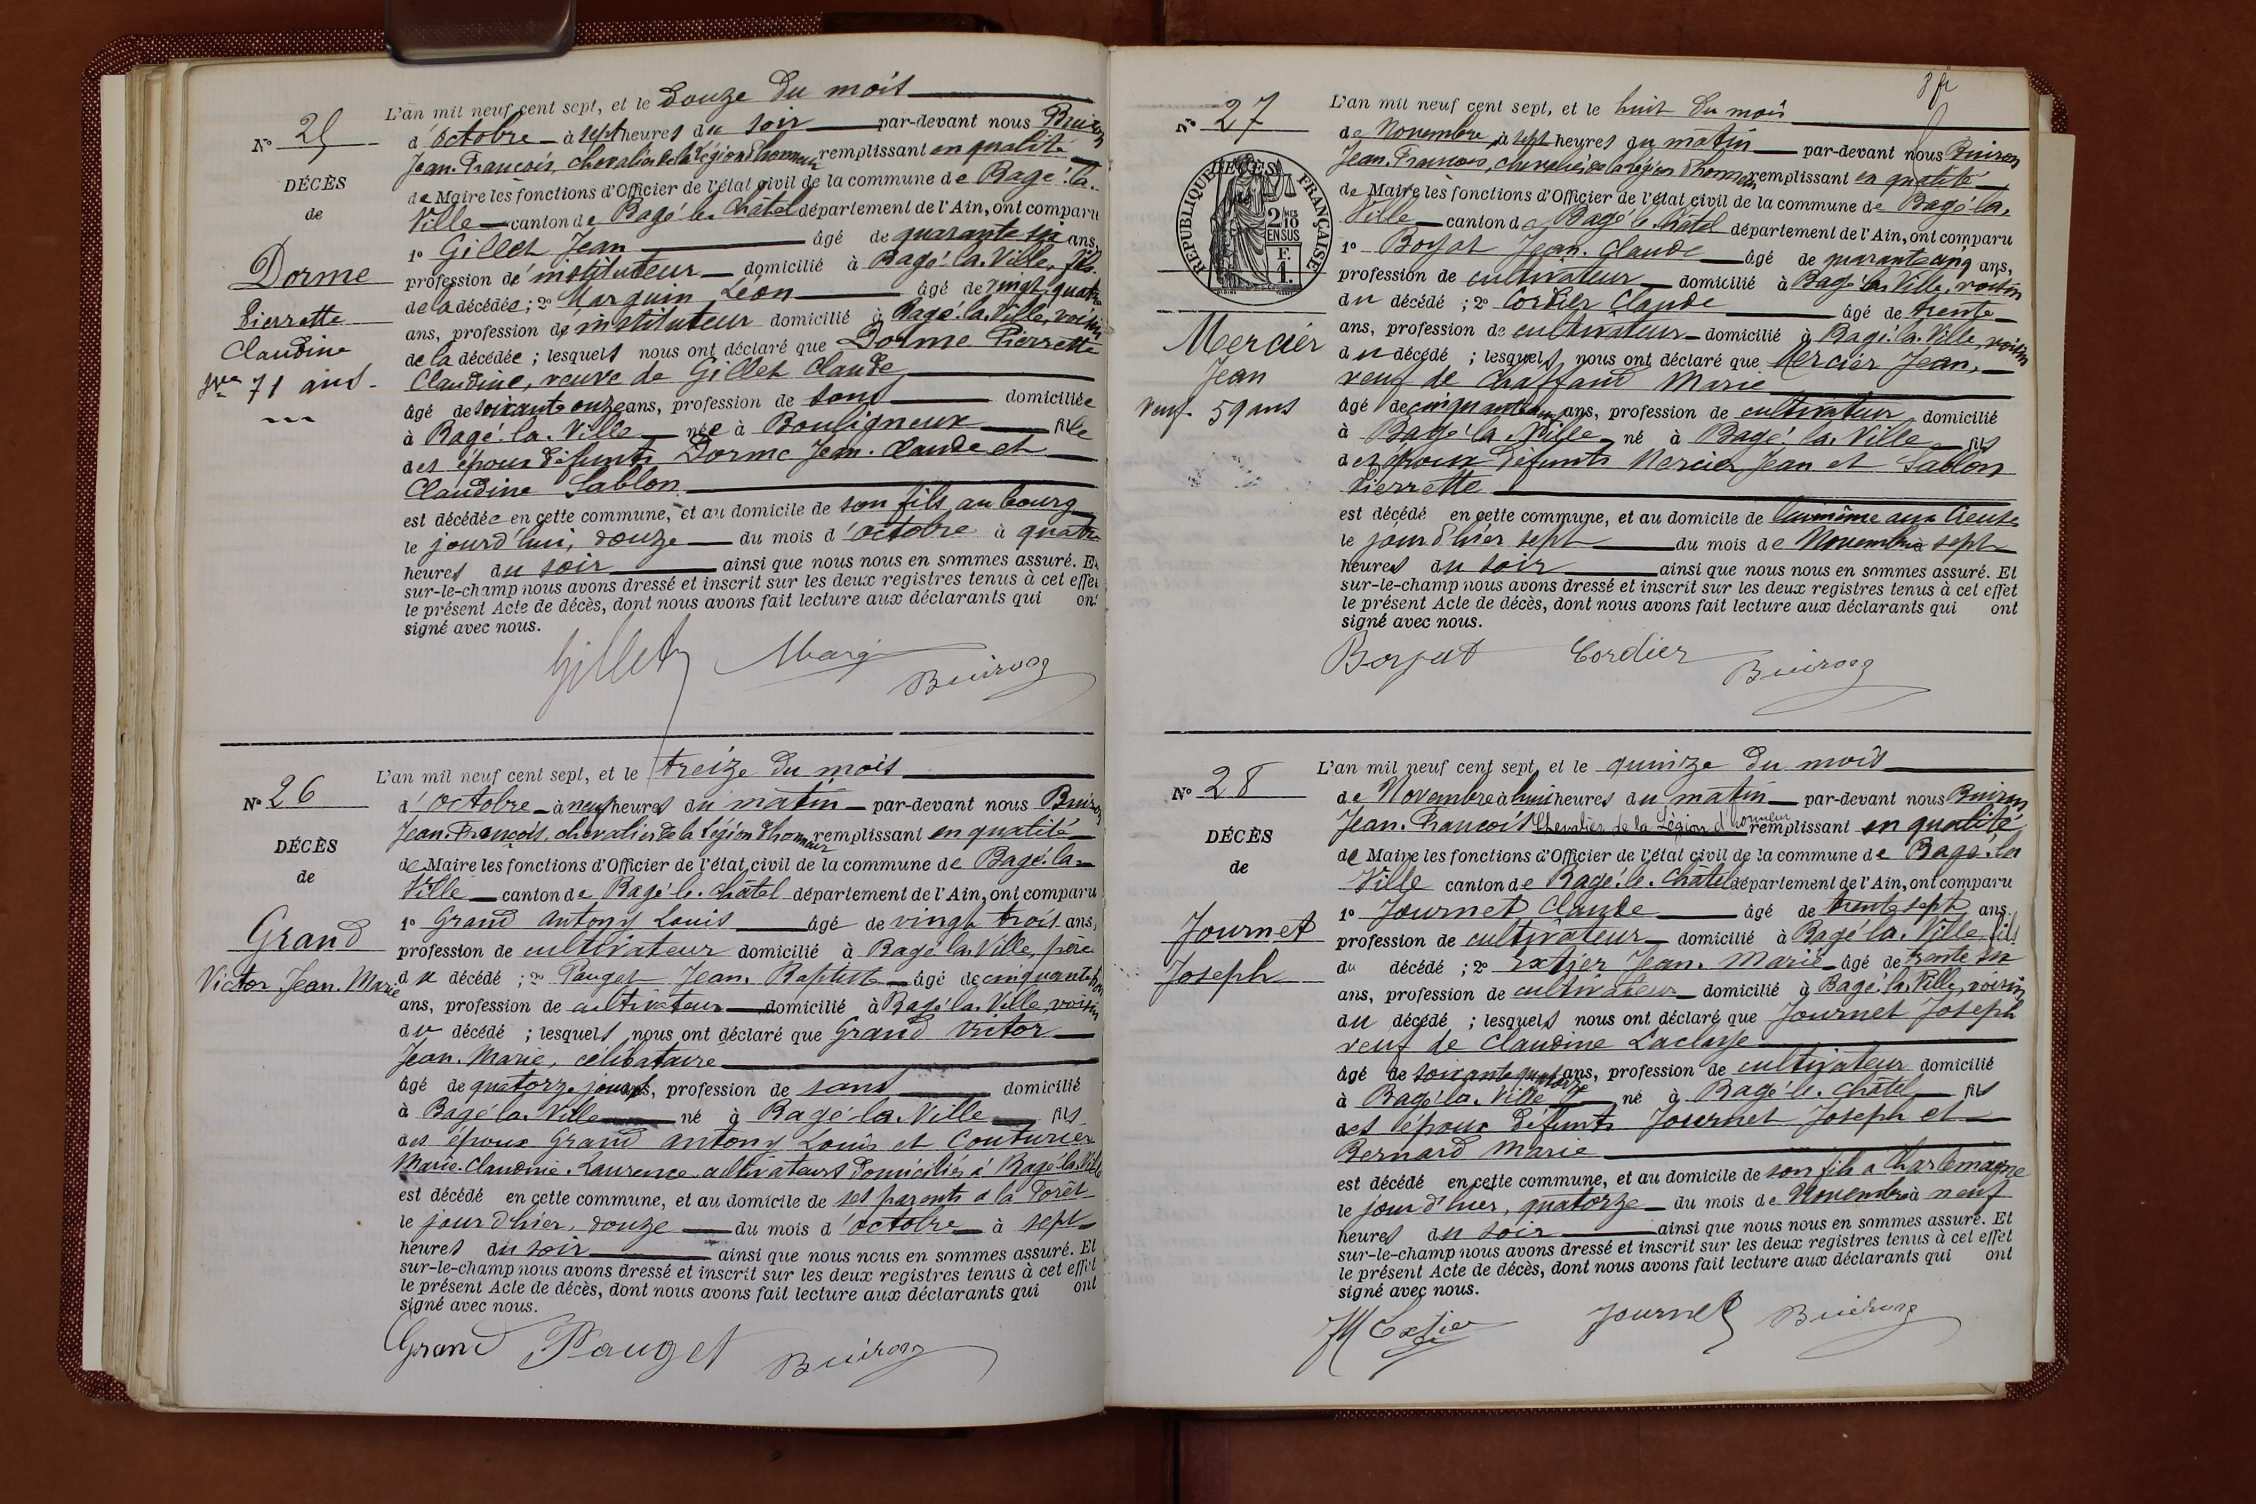 N° 25
DÉCÈS
de
Dorme
Pierrette
Claudine
Vve 71 ans
L'an mil neuf cent sept, et le Douze du mois
d'octobre à sept heures du soir par-devant nous Buiron
Jean-François, chevalier de la Légion d'honneur remplissant en qualité
de Maire les fonctions d'Officier de l'état civil de la commune de Bagé-la-
Ville canton de Bagé-le-Châtel département de l'Ain, ont comparu
1° Gillet Jean âgé de quarante six ans,
profession de instituteur domicilié à Bagé-la-Ville, fils
de la décédée ; 2° Marguin Léon âgé de vingt quatre
ans, profession de instituteur domicilié à Bagé-la-Ville, voisin
de la décédée ; lesquels nous ont déclaré que Dorme Pierrette
Claudine, veuve de Gillet Claude
âgé de soixante onze ans, profession de sans domiciliée
à Bagé-la-Ville née à Bouligneux fille
des époux défunts Dorme Jean-Claude et
Claudine Sablon
est décédée en cette commune, et au domicile de son fils au bourg
le jourd'hui, douze du mois d'octobre à quatre
heures du soir ainsi que nous nous en sommes assuré. Et
sur-le-champ nous avons dressé et inscrit sur les deux registres tenus à cet effet
le présent Acte de décès, dont nous avons fait lecture aux déclarants qui ont
signé avec nous.
Gillet Marg Buiron
N° 26
DÉCÈS
de
Grand
Victor Jean-Marie
L'an mil neuf cent sept, et le treize du mois
d'octobre à neuf heures du matin par-devant nous Buiron
Jean-François, chevalier de la Légion d'honneur remplissant en qualité
de Maire les fonctions d'Officier de l'état civil de la commune de Bagé-la-
Ville canton de Bagé-le-Châtel département de l'Ain, ont comparu
1° Grand Antony Louis âgé de vingt trois ans,
profession de cultivateur domicilié à Bagé-la-Ville, père
du décédé ; 2° Pauget Jean-Baptiste âgé de cinquante
ans, profession de cultivateur domicilié à Bagé-la-Ville, voisin
du décédé ; lesquels nous ont déclaré que Grand Victor
Jean-Marie, célibataire
âgé de quatorze jours, profession de sans domicilié
à Bagé-la-Ville né à Bagé-la-Ville fils
des époux Grand Antony Louis et Couturier
Marie-Claudine-Laurence cultivateurs domiciliés à Bagé-la-Ville
est décédé en cette commune, et au domicile de ses parents à la Forêt
le jour d'hier, douze du mois d'octobre à sept
heures du soir ainsi que nous nous en sommes assuré. Et
sur-le-champ nous avons dressé et inscrit sur les deux registres tenus à cet effet
le présent Acte de décès, dont nous avons fait lecture aux déclarants qui ont
signé avec nous.
Grand Pauget Buiron
N° 27
RÉPUBLIQUE FRANÇAISE
DÉCÈS
2/10 EN SUS
F. 1.
Mercier
Jean
Veuf 59 ans
L'an mil neuf cent sept, et le huit du mois
de Novembre à sept heures du matin par-devant nous Buiron
Jean-François, chevalier de la Légion d'honneur remplissant en qualité
de Maire les fonctions d'Officier de l'état civil de la commune de Bagé-la-
Ville canton de Bagé-le-Châtel département de l'Ain, ont comparu
1° Borjat Jean-Claude âgé de quarante cinq ans,
profession de cultivateur domicilié à Bagé-la-Ville, voisin
du décédé ; 2° Cordier Claude âgé de trente
ans, profession de cultivateur domicilié à Bagé-la-Ville, voisin
du décédé ; lesquels nous ont déclaré que Mercier Jean,
veuf de Chaffaud Marie
âgé de cinquante neuf ans, profession de cultivateur domicilié
à Bagé-la-Ville né à Bagé-la-Ville fils
des époux défunts Mercier Jean et Sablon
Pierrette
est décédé en cette commune, et au domicile de lui même aux Creuses
le jour d'hier sept du mois de Novembre à sept
heures du soir ainsi que nous nous en sommes assuré. Et
sur-le-champ nous avons dressé et inscrit sur les deux registres tenus à cet effet
le présent Acte de décès, dont nous avons fait lecture aux déclarants qui ont
signé avec nous.
Borjat Cordier Buiron
N° 28
DÉCÈS
de
Journet
Joseph
L'an mil neuf cent sept, et le quinze du mois
de Novembre à huit heures du matin par-devant nous Buiron
Jean-François Chevalier de la Légion d'honneur remplissant en qualité
de Maire les fonctions d'Officier de l'état civil de la commune de Bagé-la
Ville canton de Bagé-le-Châtel département de l'Ain, ont comparu
1° Journet Claude âgé de trente sept ans.
profession de cultivateur domicilié à Bagé-la-Ville fils
du décédé ; 2° Extier Jean-Marie âgé de trente six
ans, profession de cultivateur domicilié à Bagé-la-Ville, voisin
du décédé ; lesquels nous ont déclaré que Journet Joseph
veuf de Claudine Laclasse
âgé de soixante quatorze ans, profession de cultivateur domicilié
à Bagé-la-Ville né à Bagé-le-Châtel fils
des époux défunts Journet Joseph et
Bernard Marie
est décédé en cette commune, et au domicile de son fils à Charlemagne
le jour d'hier, quatorze du mois de Novembre à neuf
heures du soir ainsi que nous nous en sommes assuré. Et
sur-le-champ nous avons dressé et inscrit sur les deux registres tenus à cet effet
le présent Acte de décès, dont nous avons fait lecture aux déclarants qui ont
signé avec nous.
JM Extier Journet Buiron